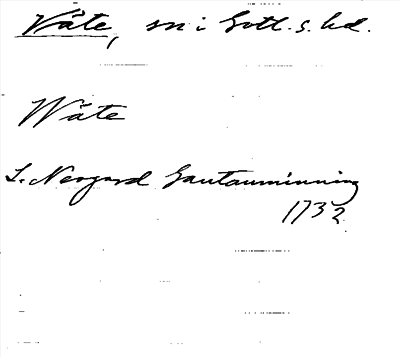 Väte, sn i Gotl. s. hd.
Wäte
L. Neogard Gautauminning
1732.